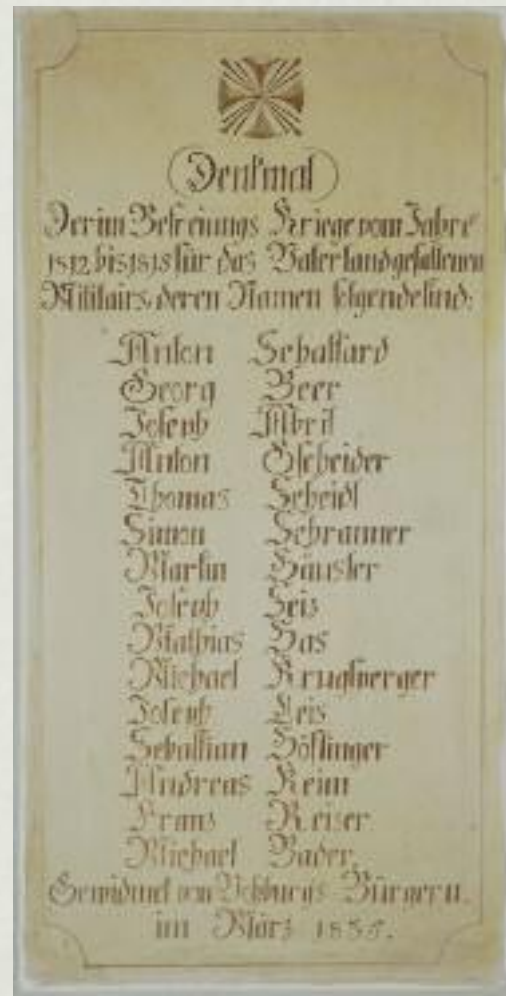 Denkmal
Der im Befreiungs Kriege vom Jahre
1812 bis 1815 für das Vaterland gefallenen
Militairs, deren Namen folgende sind:
Anton Schattard
Georg Beer
Joseph Abril
Anton Gscheider
Thomas Scheidl
Simon Schranner
Martin Häusler
Joseph Seis
Mathias Has
Michael
Joseph Leis
Sebastian Höflinger
Andreas Keim
Franz Reiser
Michael Bader.
Gewidmet von Vohburgs Bürgern.
im März 1835.